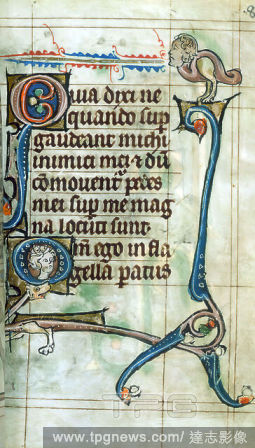 Quia dixi ne
quando sup
gaudeant michi
inimici mei & dū
cōmouent pedes
mei sup me mag
na locuti sunt.
Qm̄ ego in fla
gella patus
TPG
www.tpgnews.com / 達志影像